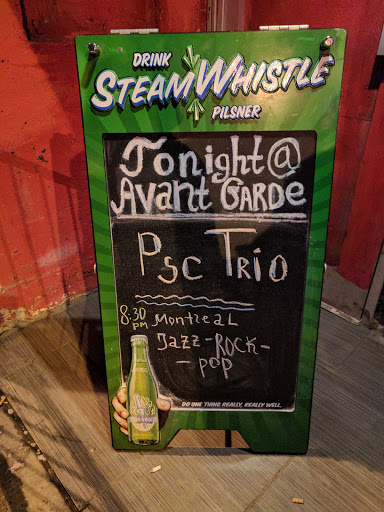 DRINK
STEAM WHISTLE
PILSNER
Tonight @
Avant GARDE
Psc TRIO
8.30 Montreal
pm
Jazz - ROCK -
- POP
DO ONE THING REALLY, REALLY WELL.